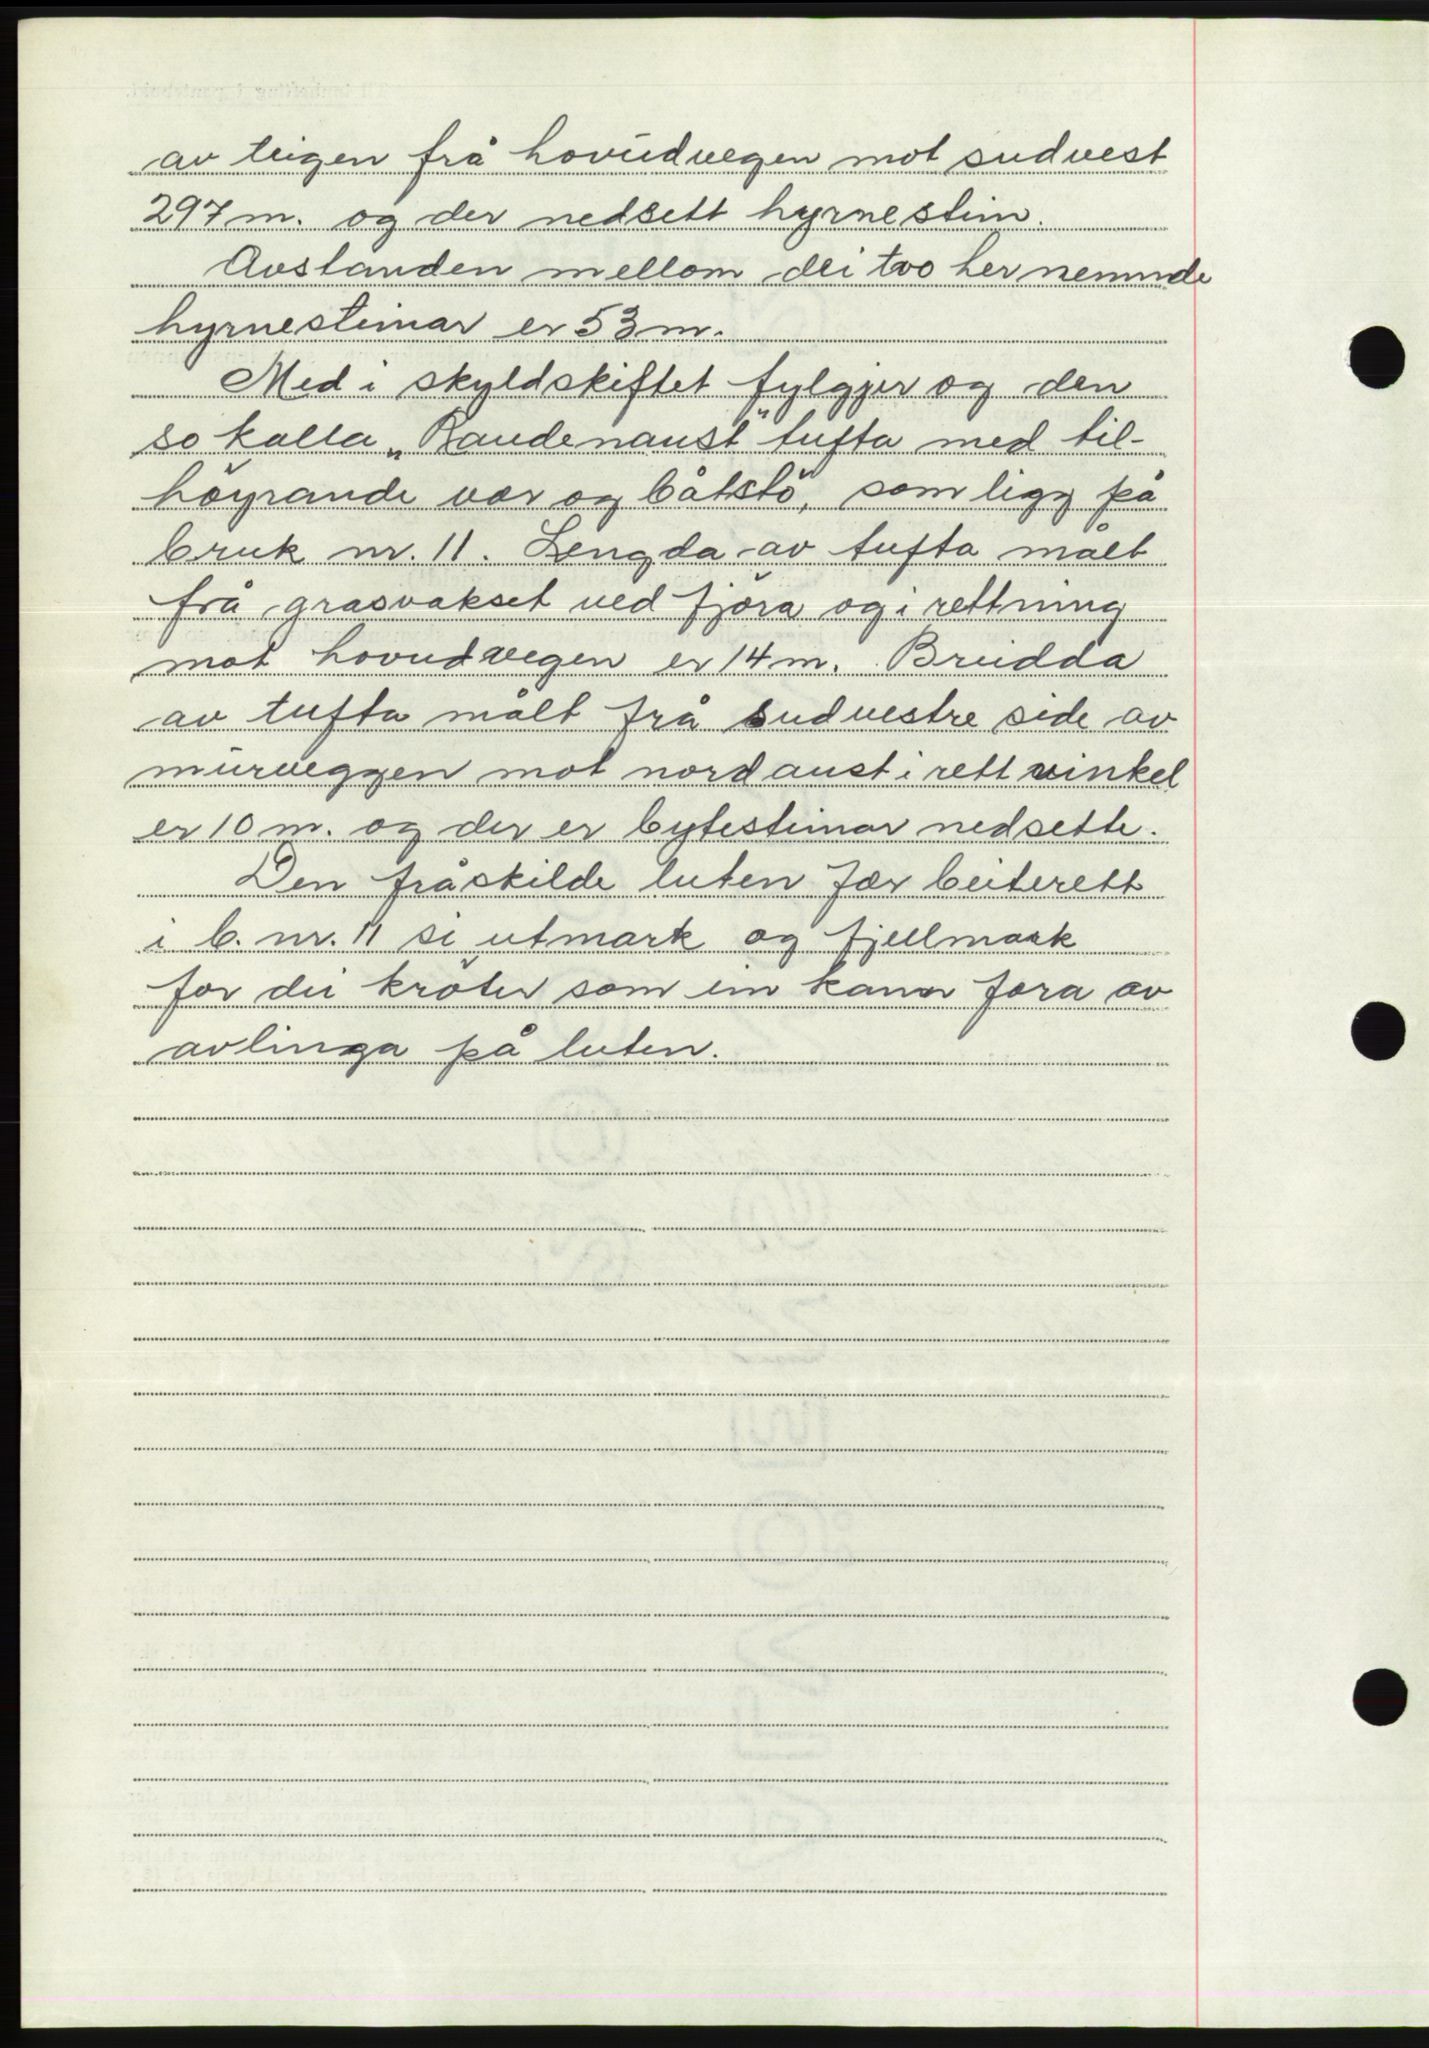 av teigen frå hovudvegen mot sudvest
297 m. og der nedsett hyrnestein.
Avstanden mellom dei two her nemnde
hyrnesteinar er 53 m.
Med i skyldskiftet fylgjer og den
so kalla „Raudenaust" tufta med til-
höyrande vor og båtstö, som ligg på
bruk nr. 11. Lengda av tufta målt
frå grasvakset ved fjöra og i rettning
mot hovudvegen er 14 m. Breidda
av tufta målt frå sudvestre side av
murveggen mot nordaust i rett vinkel
er 10 m. og der er bytesteinar nedsette.
Den fråskilde luten fær beiterett
i b. nr. 11 si utmark og fjellmark
for dei kröter som ein kann fora av
avlinga på luten.